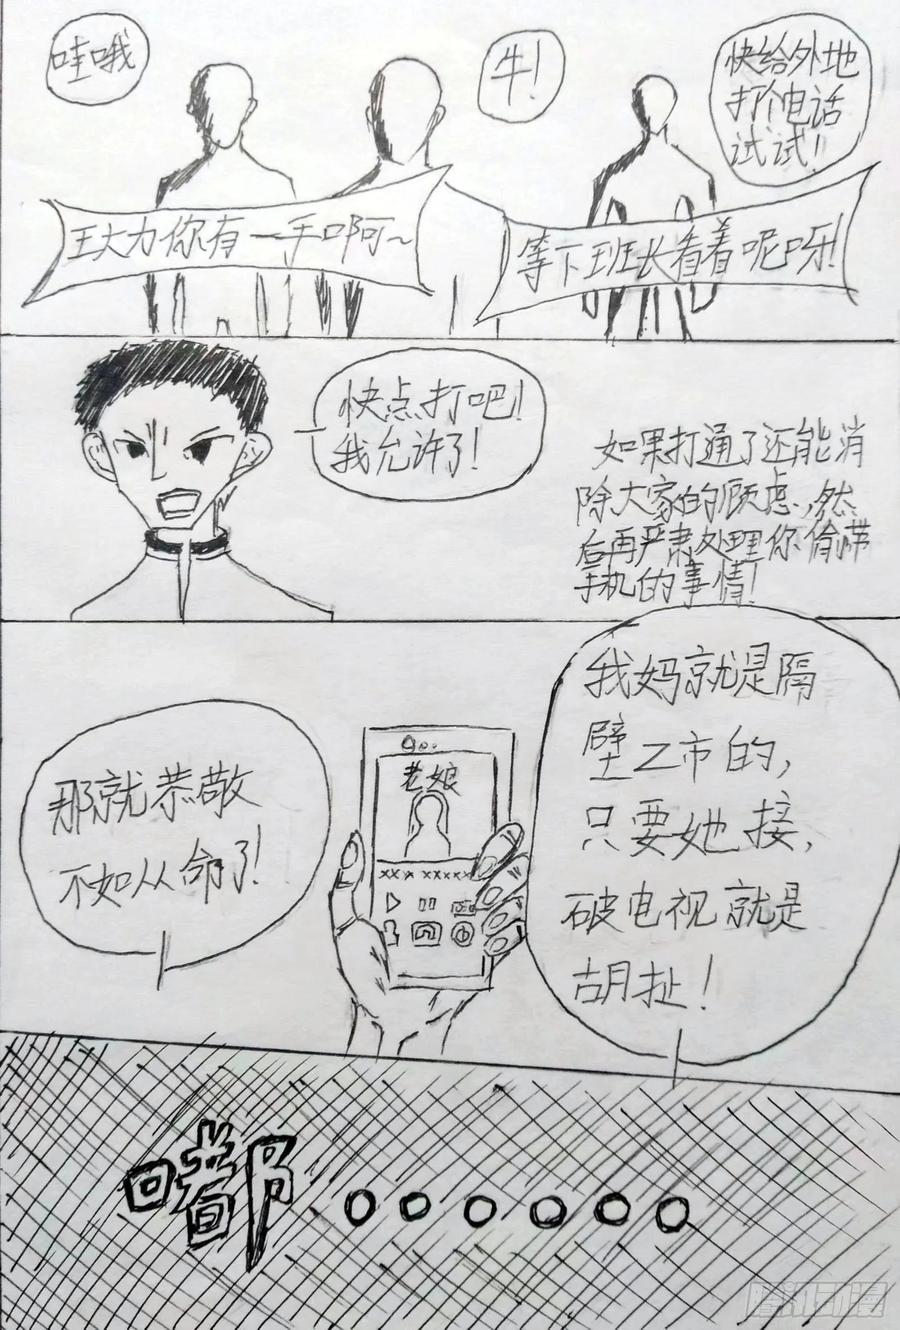 哇哦
牛!
快给外地
打个电话
试试!
王大力你有一手啊~
等下班长看着呢呀!
快点打吧!
我允许了!
如果打通了还能消
除大家的顾虑,然
后再严肃处理你偷带
手机的事情!
我妈就是隔
壁Z市的,
只要她接,
破电视就是
胡扯!
那就恭敬
不如从命了!
老娘
xxx xxxxx
嘟。。。。。。
腾讯动漫